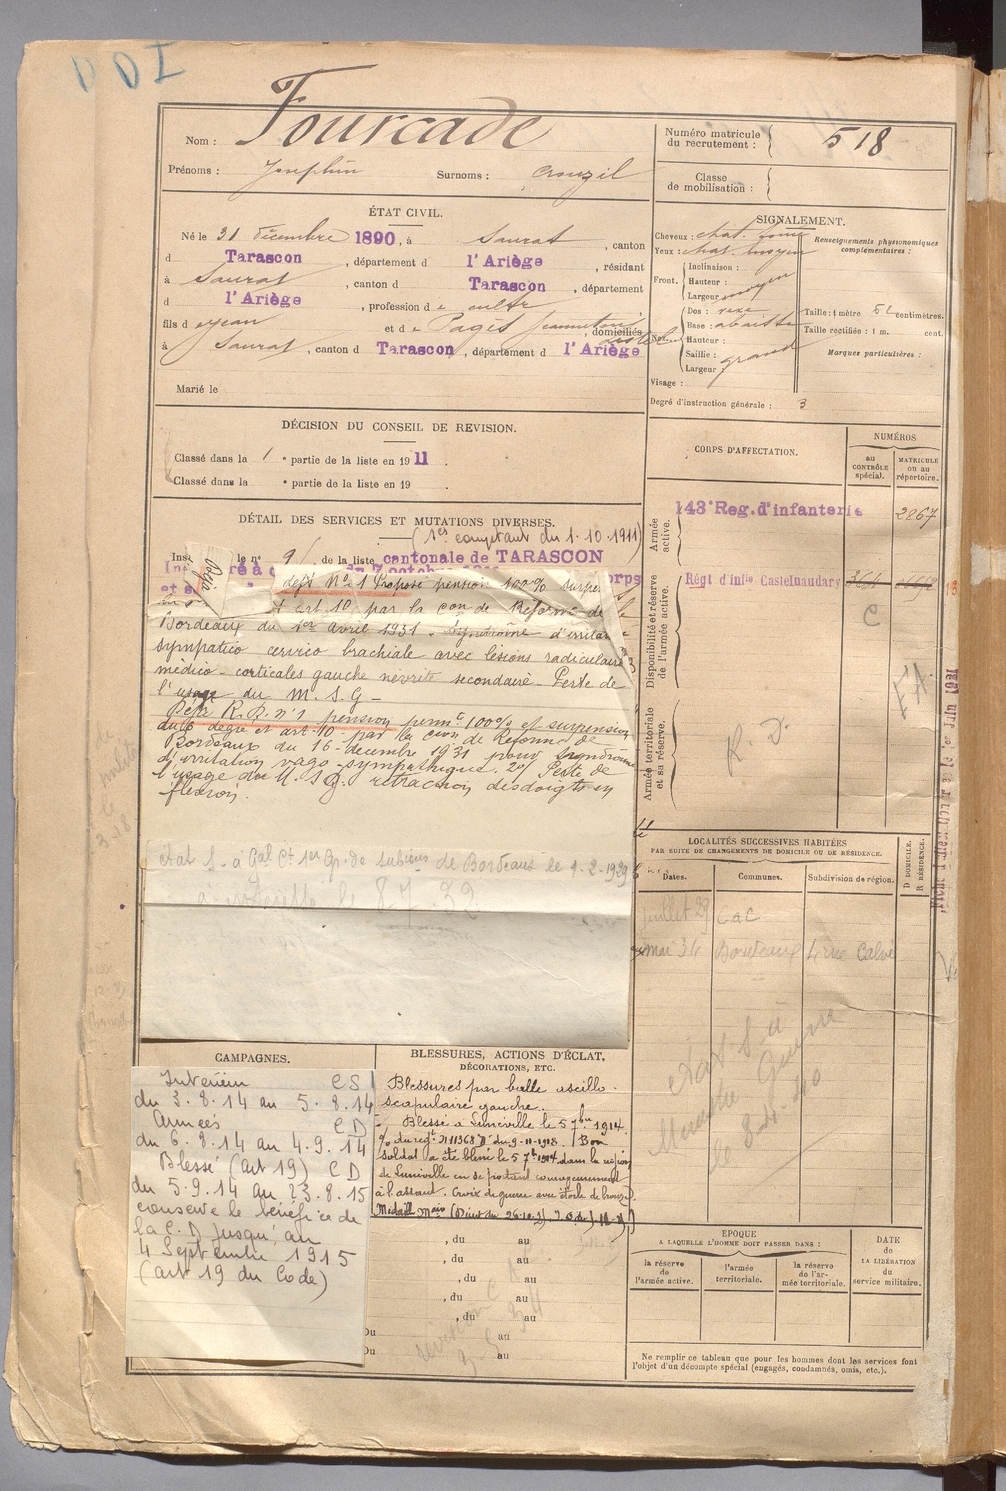 DDI
Nom : Fourcade
Prénoms : Josephin Surnoms : Crouzil
Numéro matricule du recrutement : 518
Classe de mobilisation :
ÉTAT CIVIL.
Né le 31 décembre 1890, à Saurat, canton
d Tarascon, département d l'Ariège, résidant
à Saurat, canton d Tarascon, département
d l'Ariège, profession de cultr
fils de Jean et de Pagès Jeanneton, domiciliés
à Saurat, canton d Tarascon, département d l'Ariège
Marié le
SIGNALEMENT.
Cheveux : chat. fonc
Yeux : chat. moyen
Front. Inclinaison :
Hauteur :
Largeur moyen
Dos : rexe
Base : abaissée
Hauteur :
Saillie : grand
Largeur :
Visage :
Degré d'instruction générale : 3
Renseignements physionomiques complémentaires :
Taille : 1 mètre 52 centimètres.
Taille rectifiée : 1 m. cent.
Marques particulières :
DÉCISION DU CONSEIL DE REVISION.
Classé dans la 1e partie de la liste en 1911.
Classé dans la e partie de la liste en 19 .
DÉTAIL DES SERVICES ET MUTATIONS DIVERSES.
(1er comptant du 1.10.1911)
le n° 91 de la liste cantonale de TARASCON
N° 1 Proposé pension 100% surpen
art 10 par la con de Reforme de
Bordeaux du 1er avril 1931. Syndrome d'irritat
sympatico cervico brachiale avec lésions radiculaire
médico-corticales gauche nevrite secondaire. Perte de
l'usage du M.S.G.
R.D. n°1 pension perm te 100% et surpension
du 6 degré et art. 10 par la con de Reforme de
Bordeaux du 16 decembre 1931 pour syndrome
d'irritation vago-sympathique. 2°/ Perte de
l'usage du M.S.G. rétraction des doigts en
flexion.
état S. à Gal Ct 1er Gp. de Subions de Bordeaux le 1-2-1929
le 8 7-32
CORPS D'AFFECTATION.
NUMÉROS
au CONTRÔLE spécial.
MATRICULE ou au répertoire.
Armée active.
143e Reg. d'infanterie 2867
Disponibilité et réserve de l'armée active.
Régt d'infie Castelnaudary
C
Armée territoriale et sa réserve.
R. D.
LOCALITÉS SUCCESSIVES HABITÉES
PAR SUITE DE CHANGEMENTS DE DOMICILE OU DE RÉSIDENCE.
Dates. Communes. Subdivision de région. D DOMICILE. R RÉSIDENCE.
Juillet 29
Mai 34 Bordeaux 4 rue Calvé
état S à
Guerre
CAMPAGNES.
Intérieur CS
du 3.8.14 au 5.8.14
Armées CD
du 6.8.14 au 4.9.14
Blessé (art 19) CD
du 5.9.14 au 23.8.15
conserve le bénéfice de
la C.D jusqu'au
4 Septembre 1915
(art 19 du Code)
BLESSURES, ACTIONS D'ÉCLAT,
DÉCORATIONS, ETC.
Blessures par balle axillo-
scapulaire gauche.
Blessé à Luneville le 5 7bre 1914.
o/ du regt N 11368 "D" du 9-11-1918. Bon
soldat a été blessé le 5 7b 1914 dans la région
de Luneville en se portant courageusement
à l'assaut. Croix de guerre avec étoile de bronze.
, du au
, du au
, du au
, du au
, du au
Du au
Du au
EPOQUE
A LAQUELLE L'HOMME DOIT PASSER DANS :
la réserve de l'armée active.
l'armée territoriale.
la réserve de l'armée territoriale.
DATE DE LA LIBÉRATION du service militaire.
Ne remplir ce tableau que pour les hommes dont les services font
l'objet d'un décompte spécial (engagés, condamnés, omis, etc.).